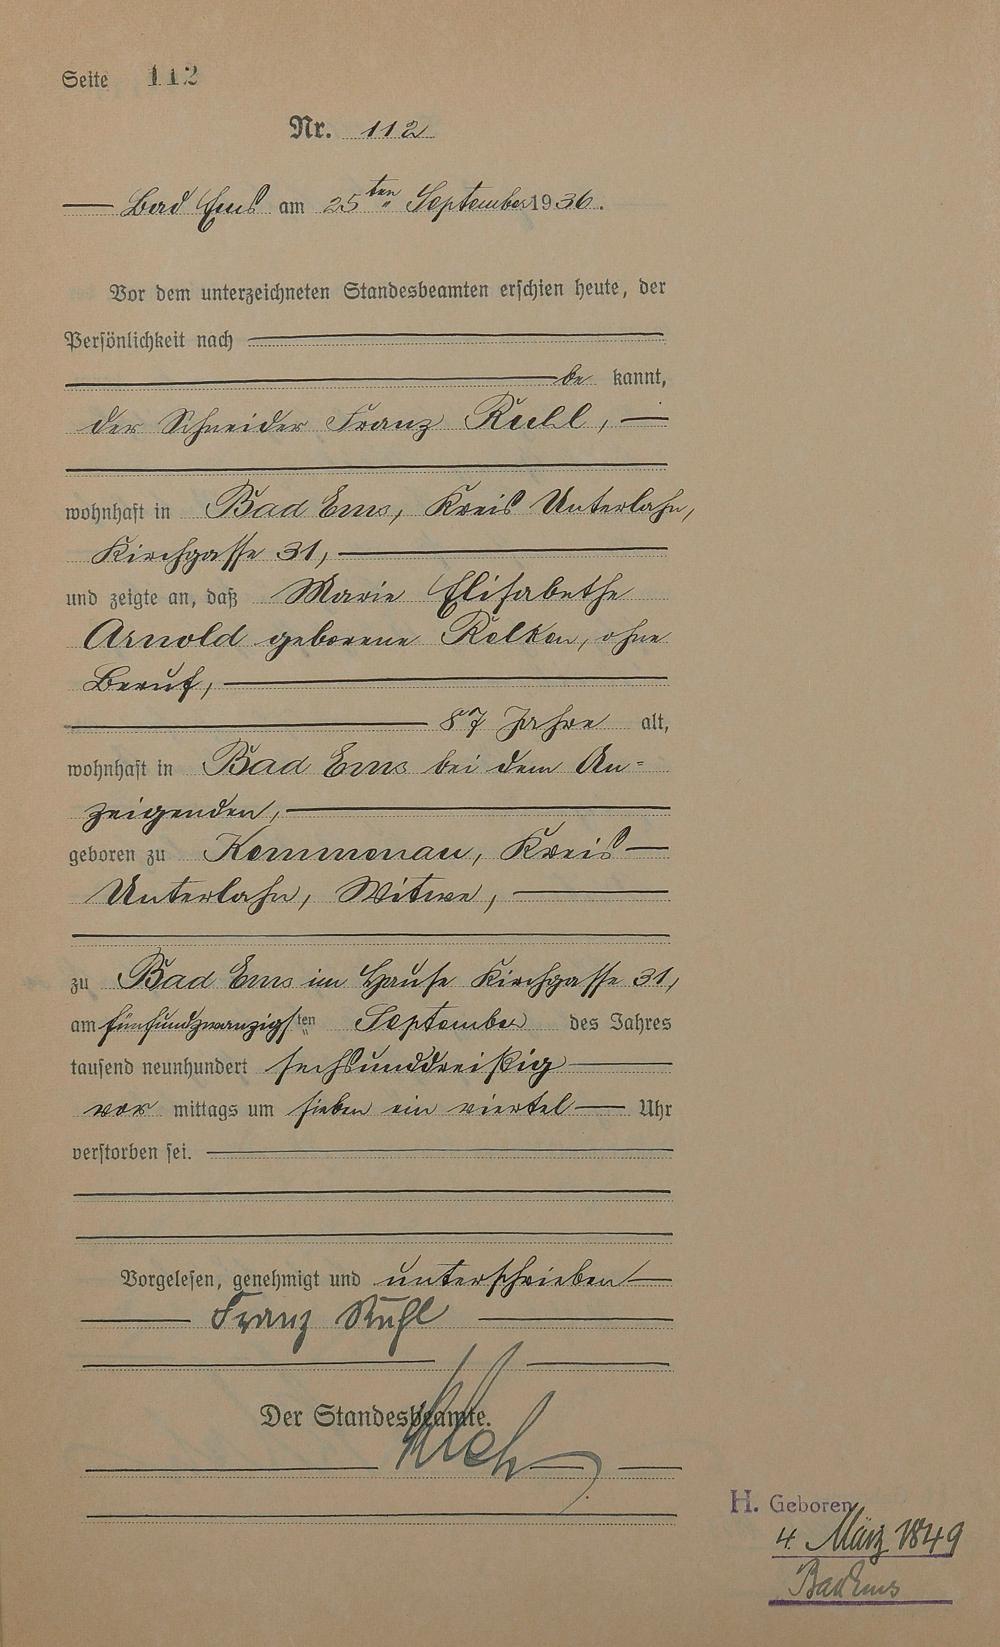 Seite 112
Nr. 112
Bad Ems am 25ten September 1936.
Vor dem unterzeichneten Standesbeamten erschien heute, der
Persönlichkeit nach
be kannt,
der Schneider Franz Ruhl,
wohnhaft in Bad Ems, Kreis Unterlahn,
Kirchgasse 31,
und zeigte an, daß Marie Elisabethe
Arnold geborene , ohne
Beruf,
87 Jahre alt,
wohnhaft in Bad Ems bei dem An=
zeigenden,
geboren zu Kemmenau, Kreis
Unterlahn, Witwe,
zu Bad Ems im Hause Kirchgasse 31,
am fünfundzwanzigsten September des Jahres
tausend neunhundert sechsunddreißig
vor mittags um sieben ein viertel Uhr
verstorben sei.
Vorgelesen, genehmigt und unterschrieben
Franz Ruhl
Der Standesbeamte.
H. Geboren
4. März 1849
Bad Ems